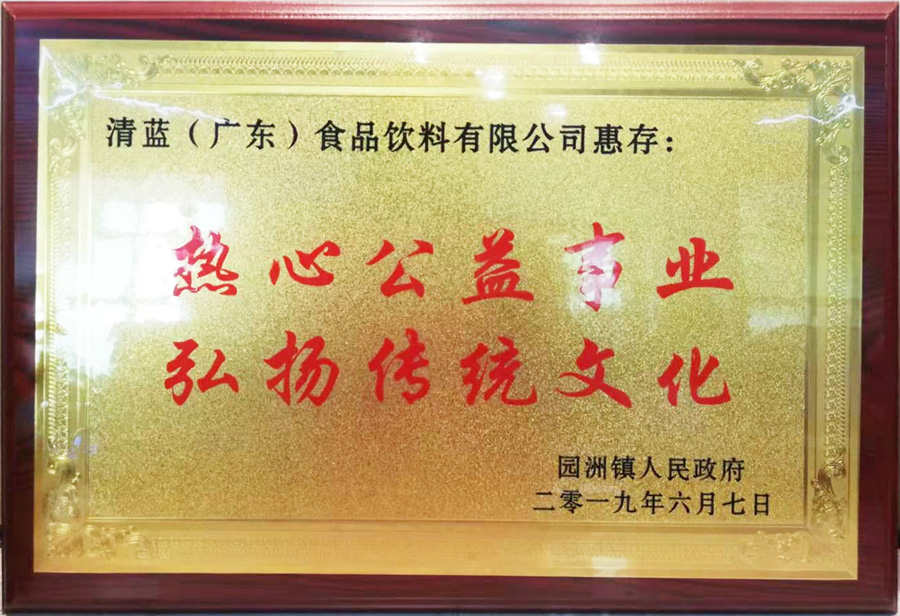 清蓝（广东）食品饮料有限公司惠存：
热心公益事业
弘扬传统文化
园洲镇人民政府
二零一九年六月七日